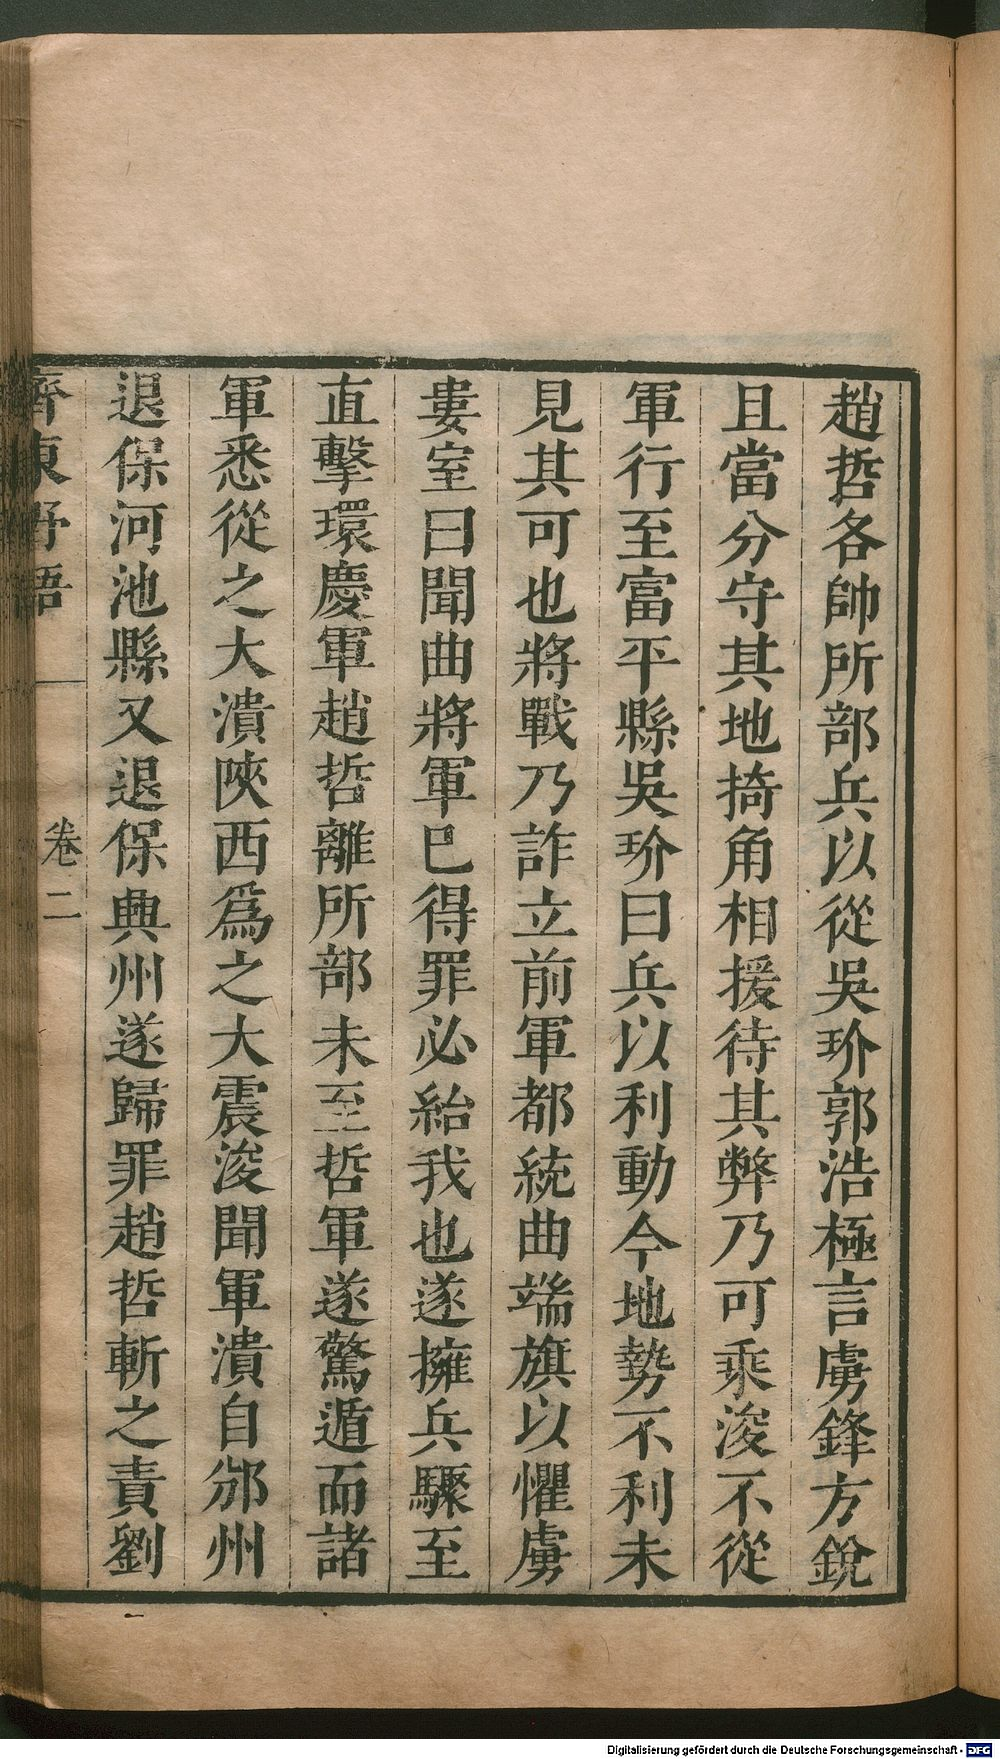 趙哲各帥所部兵以從吳玠郭浩極言虜鋒方銳
且當分守其地掎角相援待其弊乃可乘浚不從
軍行至富平縣吳玠曰兵以利動今地勢不利未
見其可也將戰乃詐立前軍都統曲端旗以懼虜
婁室曰聞曲將軍巳得罪必紿我也遂擁兵驟至
直擊環慶軍趙哲離所部未至哲軍遂驚遁而諸
軍悉從之大潰陝西爲之大震浚聞軍潰自邠州
退保河池縣又退保興州遂歸罪趙哲斬之責劉
齊東野語 卷二
Digitalisierung gefördert durch die Deutsche Forschungsgemeinschaft - DFG